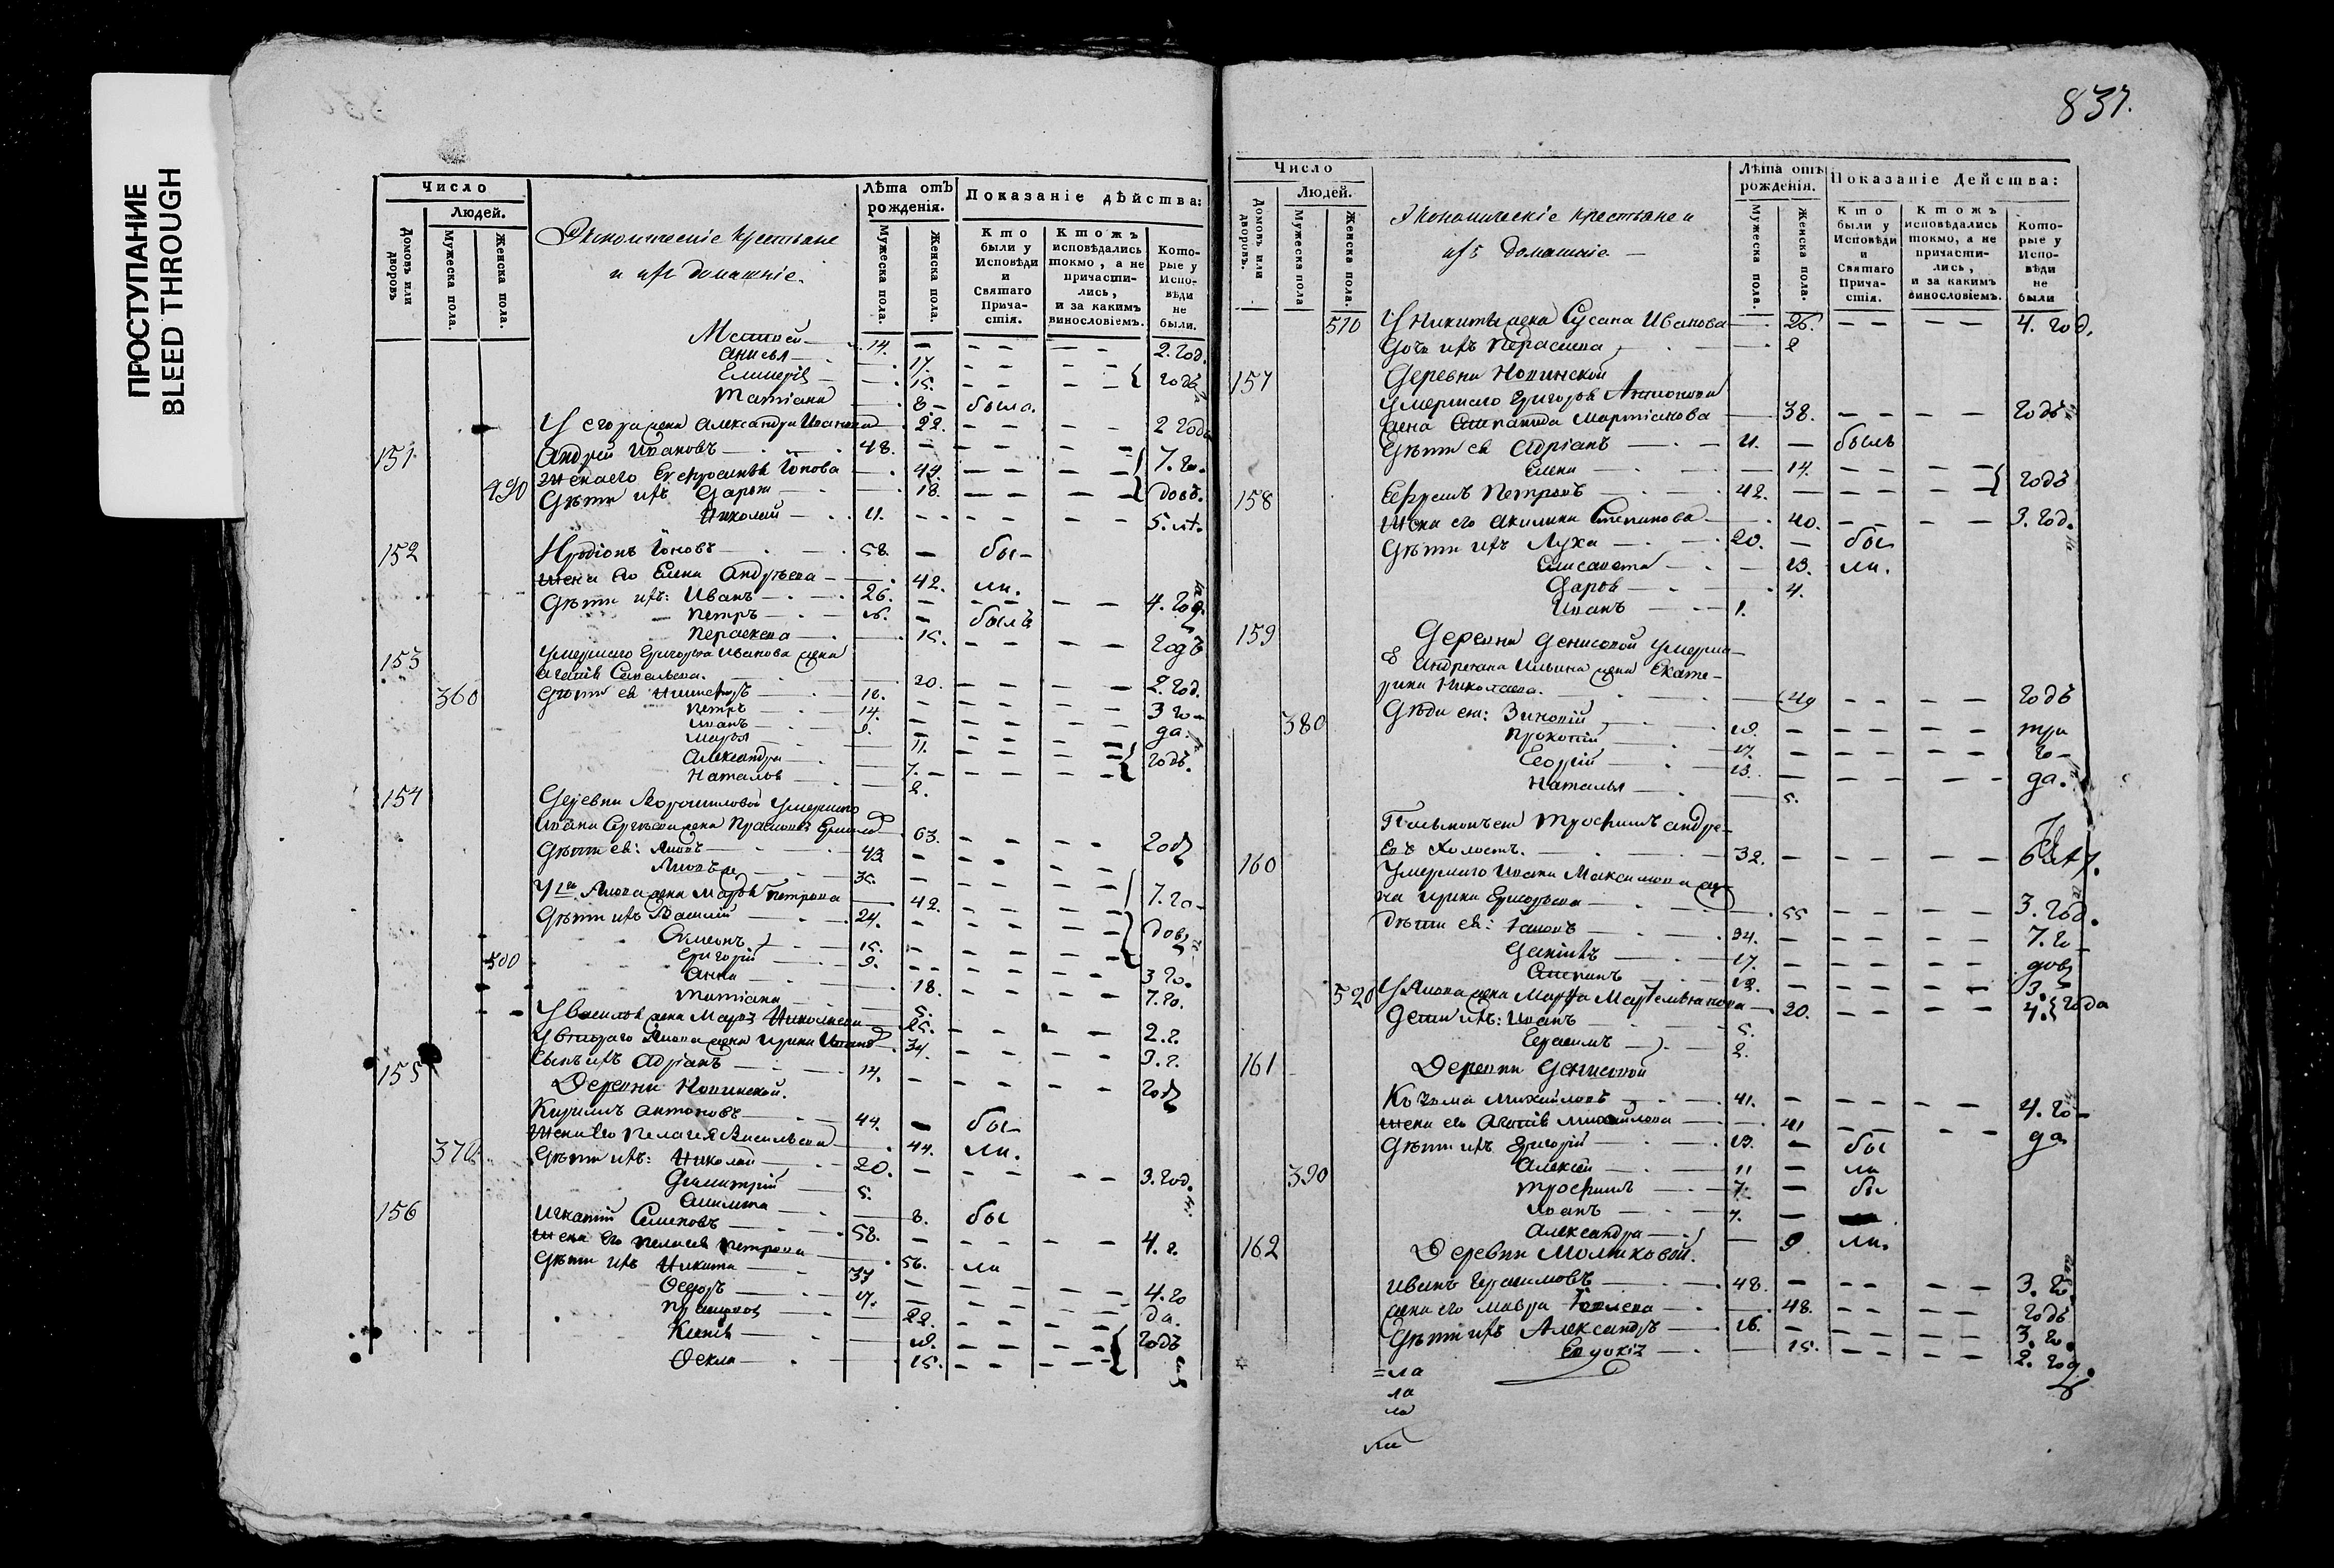 ПРОСТУПАНИЕ
BLEED THROUGH
Число
Людей.
Домовъ или дворовъ
Мужеска пола.
Женска пола.
Экономическіе крестьяне
и ихъ домашніе.
Лѣта отъ рожденія.
Мужеска пола.
Женска пола.
Показаніе дѣйства:
Кто были у Исповѣди и Святаго Прича-стія.
Ктожъ исповѣдались токмо, а не причасти-лись, и за какимъ винословіемъ.
Кото-рые у Испо-вѣди не были.
14. 2. год.
Анисья 17.
15. годъ
Татіана 8 была.
У его жена Александра Иванова 22. 2 года
151 Андрей Ивановъ 48. 7. го-
Жена его Евфросинія Іонова 44.
490 Дѣти ихъ Дарья 18. довъ.
Николай 11. 5. лѣ.
152 Иродіонъ Іоновъ 58. бы-
Жена его Елена Андреева 42. ли.
Дѣти ихъ: Иванъ 26. 4. год.
Петръ 16. былъ
Параскева 15. годъ
153 Умершаго Григорья Иванова жена
Агафія Савельева. 2. год.
360 Дѣти ея 18.
Петръ 14. 3 го-
Иванъ 9. да.
Марья 11.
Александра 7. годъ.
Наталья 2.
154 Деревни Ворошиловой умершаго
Ивана Сергѣева жена 63. годъ
Дѣти ея: Яковъ 43
Яковъ 35.
У 1го Якова жена Марья Петрова 42. 7. го-
Дѣти ихъ Василій 24. довъ
Симеонъ 15.
500 Григорій 9. 3 го.
Анна 18. 7. го.
Татіана 5.
У Василья жена Марья Николаева 25. 2. г.
У втораго Якова жена Ирина 34. 3. г.
Сынъ ихъ Адріанъ 14. годъ
155 Деревни Нопинской.
Кирилъ Антоновъ 44. бы-
Жена его Пелагея Васильева 44. ли.
370. Дѣти ихъ: Николай 20. 3. год.
Димитрій 5.
8. бы
156 Игнатій Семеновъ 58. 4. г.
Жена его Пелагея Петрова 56. ли
Дѣти ихъ Никита 37 4. го
Ѳедоръ 17. да.
22.
Ксенія 18. годъ
Ѳекла 15.
837.
Число
Людей.
Домовъ или дворовъ.
Мужеска пола
Женска пола.
Экономическіе крестьяне и
ихъ домашніе.
Лѣта отъ рожденія.
Мужеска пола.
Женска пола.
Показаніе Действа:
Кто были у Исповѣди и Святаго Прича-стія.
Ктожъ исповѣдались токмо, а не причасти-лись, и за какимъ винословіемъ.
Кото-рые у Испо-вѣди не были
510 У Никиты жена Сусана Иванова 26. 4. год.
Дочь ихъ 2
157 Деревни Нопинской
Умершаго Григорья Антонова
жена Мартіанова 38. годъ
Дѣти ея Адріанъ 11. былъ
Елена 14. годъ
158 Ефремъ Петровъ 42.
Жена его Акилина Степанова 40. 3. год.
Дѣти ихъ Лука 20. бы
Елисавета 13. ли.
Дарья 4.
Иванъ 1.
159 Деревни Денисовой умерша-
Ильина жена Екате-
рина Николаева. 49 годъ
380 Дѣти ея: Зиновій 19. три
Прокопій 17. го-
Георгій 13. да.
Наталья 5.
Трофимъ Андре-
евъ Холостъ. 32. 6 лѣт.
160 Умершаго Ивана Максимова же-
на Ирина Григорьева 55 3. год.
Дѣти ея: Яковъ 34. 7. го-
17. довъ
Степанъ 12. 3.
520 У Якова жена Марфа 30. 4. года
Дети ихъ: Иванъ 5.
Герасимъ 2.
161 Деревни Денисовой
Козьма Михайловъ 41. 4. го-
Жена его Агафія Михайлова 41 да
Дѣти ихъ Григорій 13. бы
390 Алексѣй 11 ли
Трофимъ 7. бы
7.
Александра 9 ли.
162 Деревни Моликовой.
Иванъ Герасимовъ 48. 3. го.
Жена его Мавра 48. годъ
Дѣти ихъ Александръ 16. 3. го.
Евдокія 15. 2. год.
=ла
ла
ла